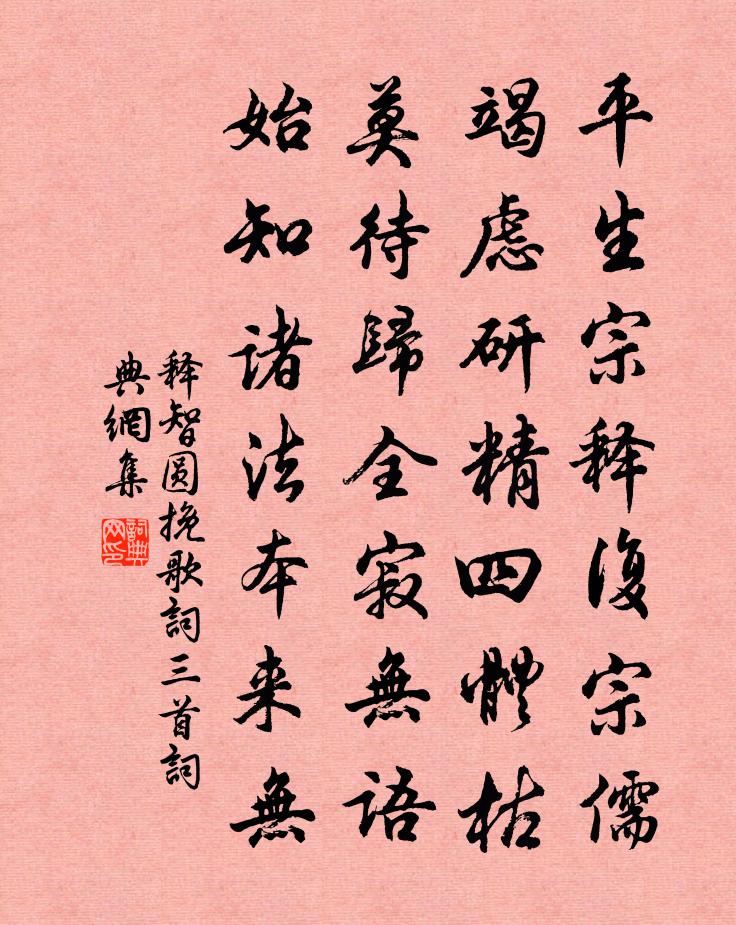 平生宗释復宗儒
竭慮研精四體枯
莫待歸全寂無語
始知諸法本来無
释智圆挽歌詞三首詞
典網集
詞典
网印